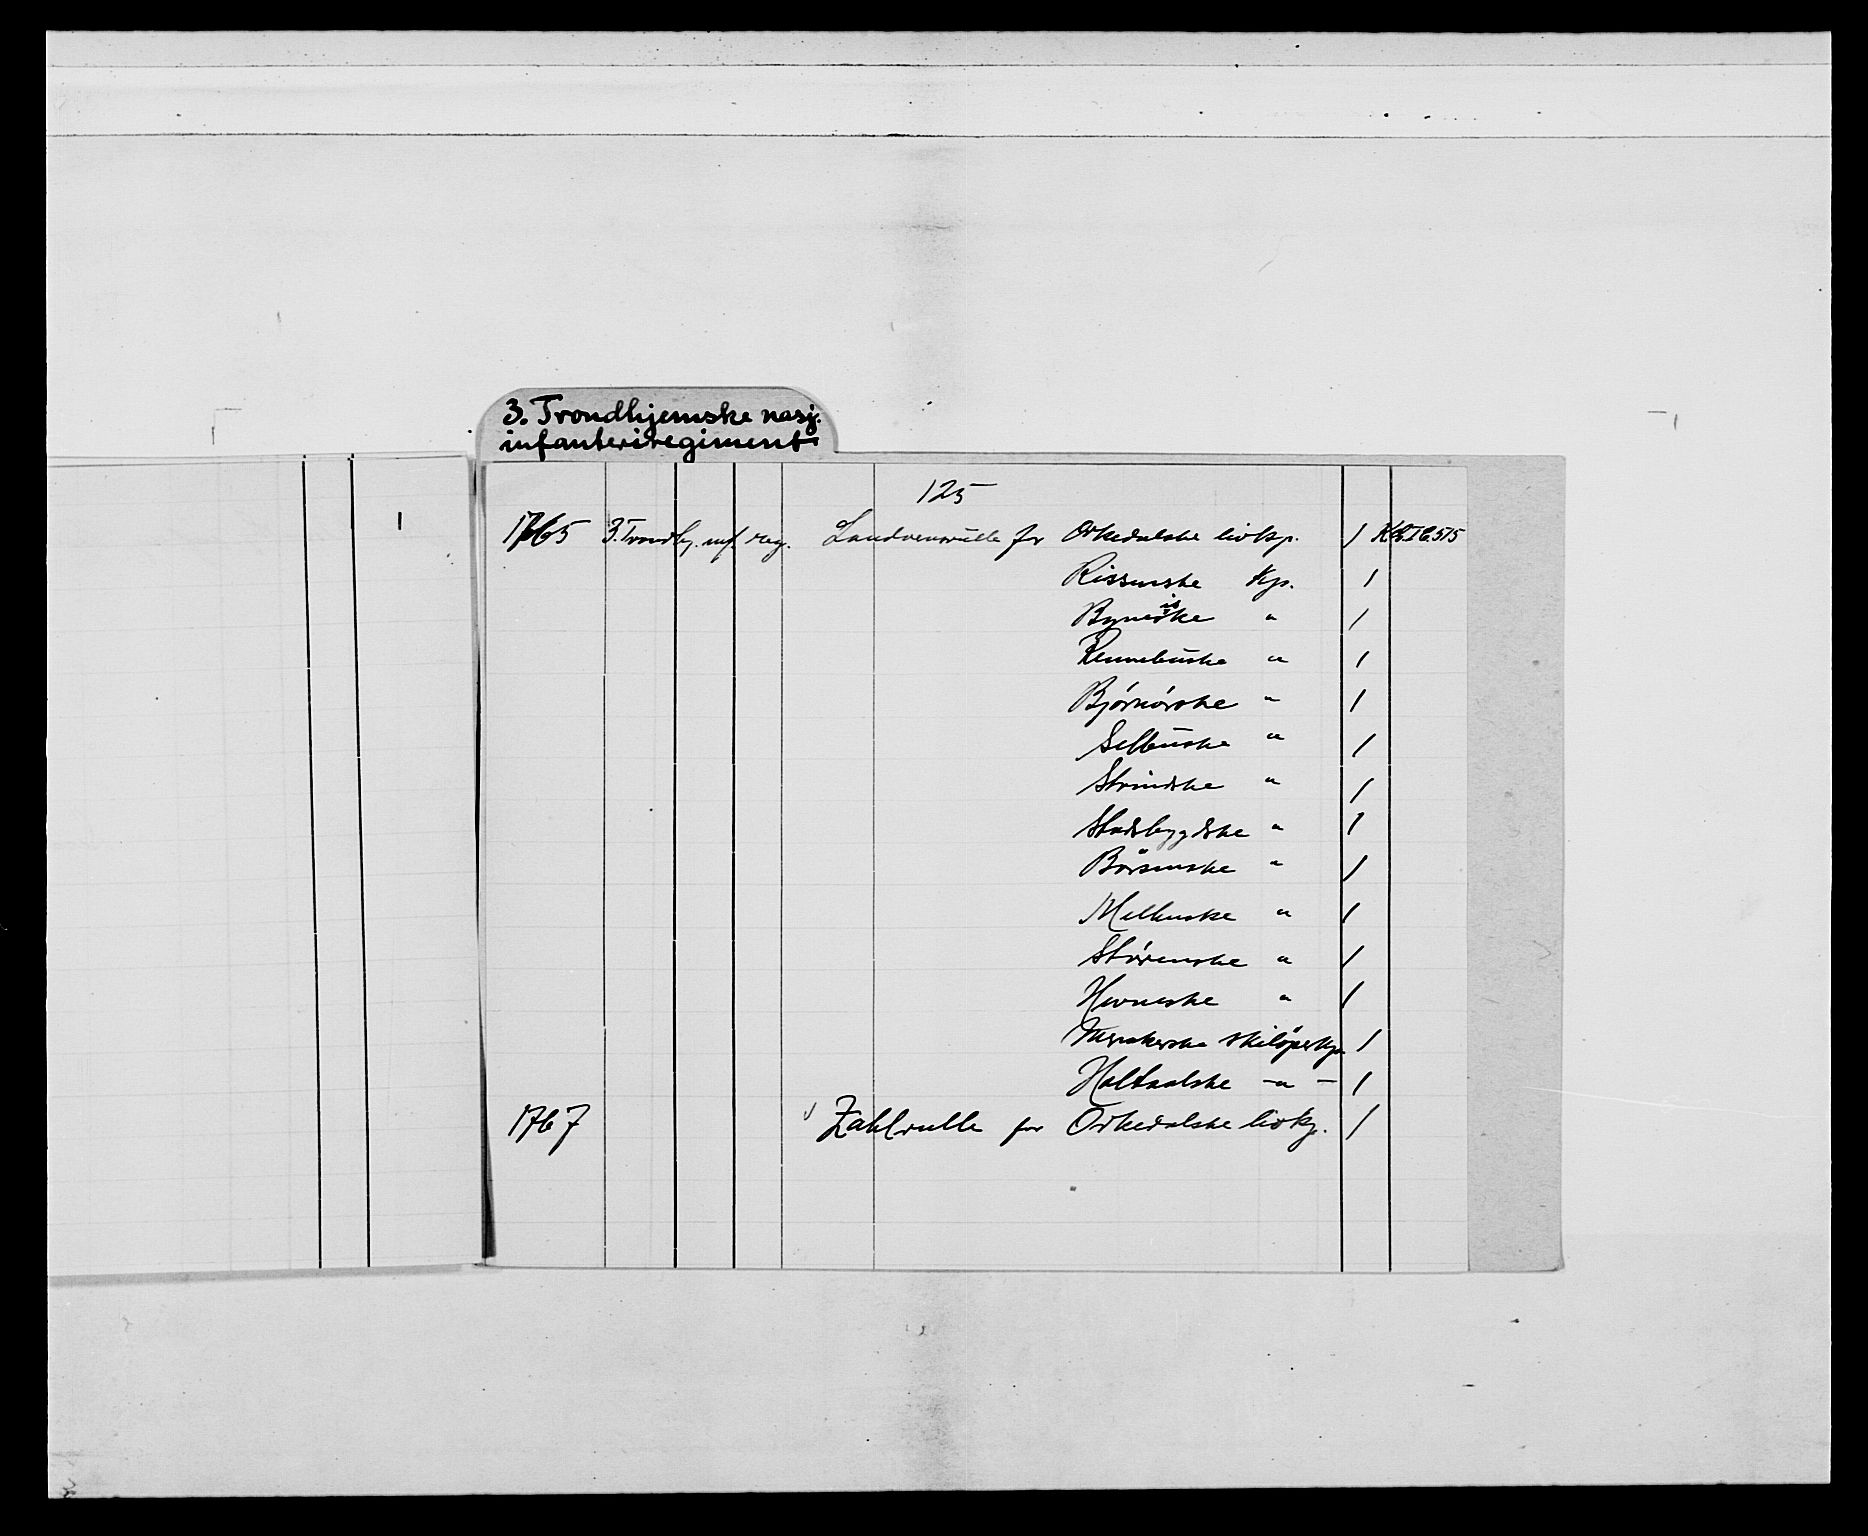 3. Trondhjemske nasj.
infanteriregiment
125
1
1765 3. Trondhj. inf. reg. Landvernrulle for Orkedalske livkp. 1 KK.I C.515
Rissenske kp. 1
Byneske is " 1
Rennebuske " 1
Bjørnørske " 1
Selbuske " 1
Strindske " 1
Stadsbygdske " 1
Børsenske " 1
Melhuske " 1
Størenske " 1
Hevneske " 1
Merakerske skilöperkp. 1
Holtaalske -"- 1
1767 Zahlrulle for Orkedalske livkp. 1